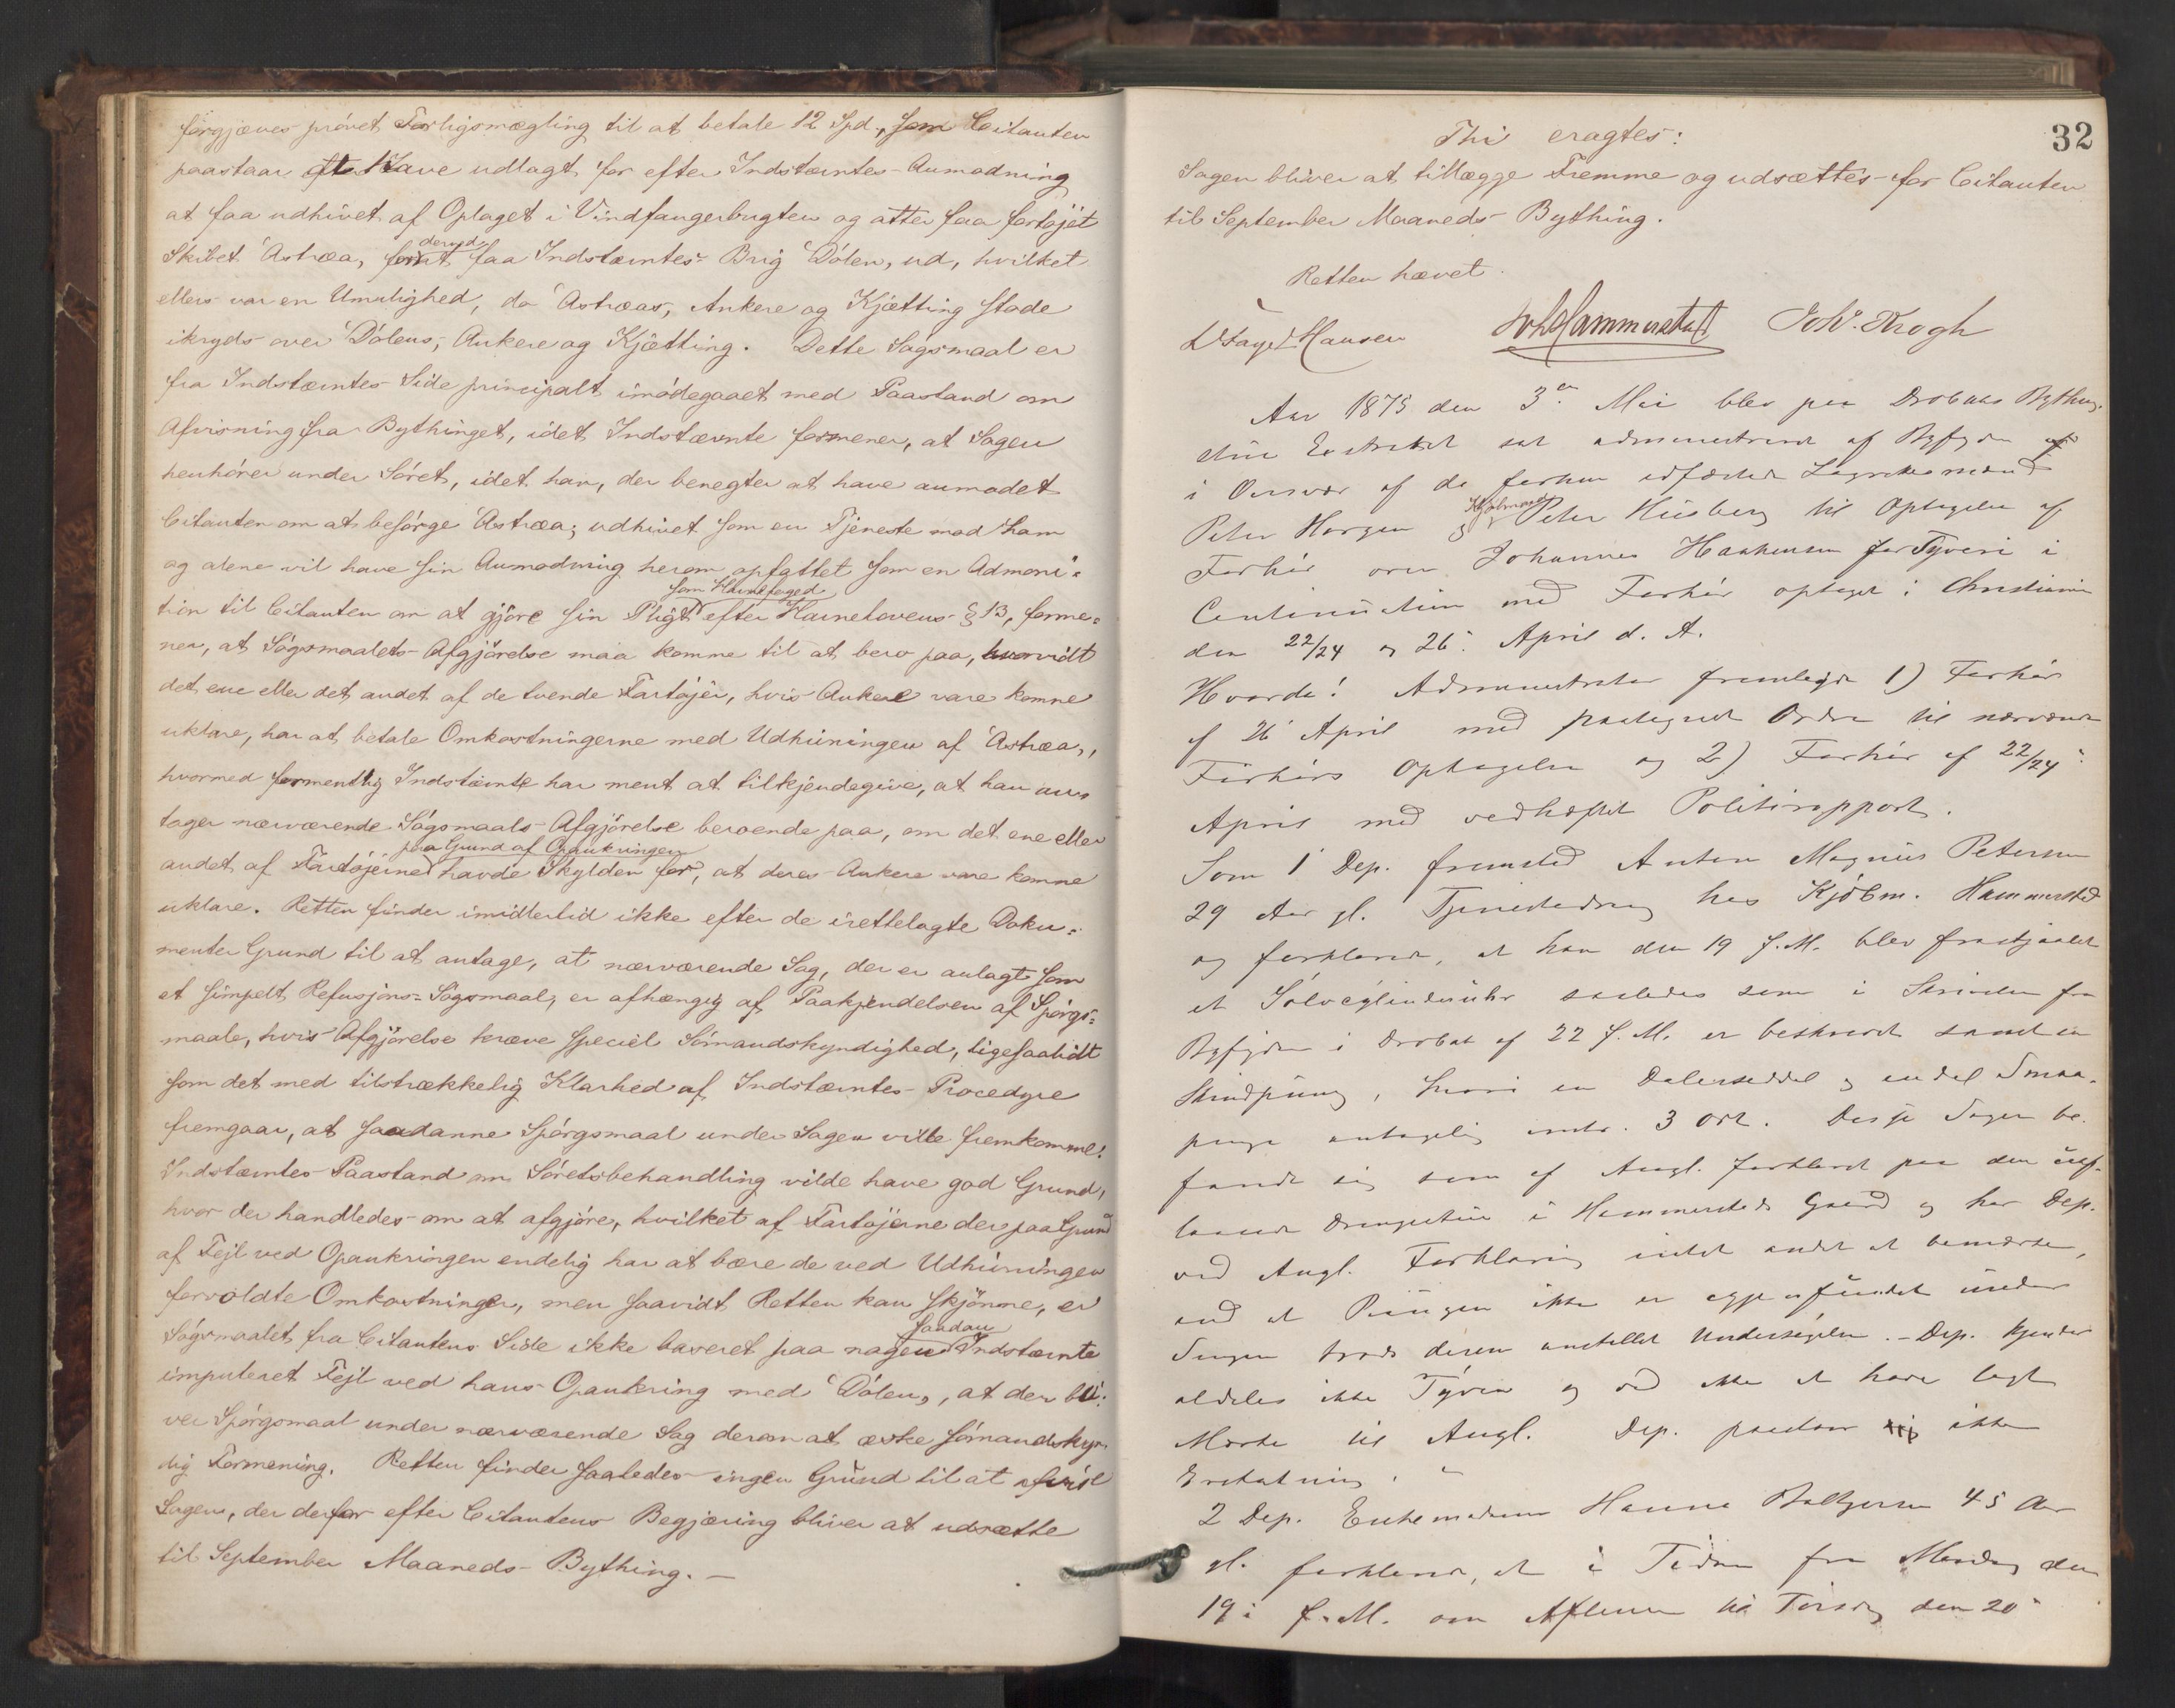 forgjæves prøvet Forligsmægling til at betale 12 Spd., som Citanten
paastaar at have udlagt for efter Indstævntes Anmodning
at faa udhivet af Oplaget i Vindfangerbugten og atter faa fortøjet
deryd
Skibet "Astræa, for at faa Indstævntes Brig "Dølen, ud, hvilket
ellers var en Umulighed, da "Astræas, Ankere og Kjætting stode
ikryds over "Dølens, Ankere og Kjætting. Dette Søgsmaal er
fra Indstævntes Side principalt imødegaaet med Paastand om
Afvisning fra Bythinget, idet Indstævnte formener, at Sagen
henhører under Søret, idet han, der benegter at have anmodet
Citanten om at besørge "Astræa, udhivet som en Tjeneste mod ham
og alene vil have sin Anmodning herom opfattet som en Admoni=
som Havnefoged
tion til Citanten om at gjøre sin Pligt efter Havnelovens § 13, forme=
ner, at Søgsmaalets Afgjørelse maa komme til at bero paa, hvorvidt
det ene eller det andet af de tvende Fartøjer, hvis Ankere vare komne
uklare, har at betale Omkostningerne med Udhivningen af "Astræa,,
hvormed formentlig Indstævnte har ment at tilkjendegive, at han an
tager nærværende Søgsmaals Afgjørelse beroende paa, om det ene eller
paa Grund af Opankringen
andet af Fartøjerne havde Skylden for, at deres Ankere vare komne
uklare. Retten finder imidlertid ikke efter de irettelagte Doku=
menter Grund til at antage, at nærværende Sag, der er anlagt som
et simpelt Refusjons=Søgsmaal, er afhængig af Paakjendelsen af Spørgs=
maale, hvis Afgjørelse kræve speciel Sømandskyndighed, ligesaalidt
som det med tilstrækkelig Klarhed af Indstævntes Procedyre
fremgaar, at saadanne Spørgsmaal under Sagen ville fremkomme.
Indstævntes Paastand om Søretsbehandling vilde have god Grund,
hvor der handledes om at afgjøre, hvilket af Fartøjerne der paa Grund
af Fejl ved Opankringen endelig har at bære de ved Udhivningen
forvoldte Omkostninger, men saavidt Retten kan skjønne, er
saadan
Søgsmaalet fra Citantens Side ikke baseret paa nogen Indstævnte
imputeret Fejl ved hans Opankring med "Dølen,, at der bli=
ver Spørgsmaal under nærværende Sag derom at æske sømandskyn
dig Formening. Retten finder saaledes ingen Grund til at afvise
Sagen, der derfor efter Citantens Begjæring bliver at udsætte
til September Maaneds Bything. —
32
Thi eragtes:
Sagen bliver at tillægge Fremme og udsættes for Citanten
til September Maaneds Bything.
Retten hævet.
Faye Hansen Joh Hammerstad Joh. Krogh
Aar 1875 den 3de Mai blev paa Drøbaks Bything
stue Extraret sat administreret af Byfogden
i Overvær af de forhen edfæstede Lagrettesmænd
Kjøbmand
Peter Horgen og Peter Husberg til Optagelse af
Forhør over Johannes Haakensen for Tyveri i
Continuation med Forhør optaget i Christiania
den 22/24 og 26. April d. A.
Hvorda! Administrator fremlagde 1) Forhør
af 26 April med paategnet Ordre til nærværende
Forhørs Optagelse og 2) Forhør af 22/24
April med vedhæftet Politirapport.
Som 1 Dep. fremstod Anton Magnus Petersen
29 Aar gl. Tjenestedreng hos Kjøbm. Hammerstad
og forklarede, at han den 19 f. M. blev frastjaalet
et Sølvcylinderuhr saaledes som i Skrivelse fra
Byfogden i Drøbak af 22 f. M. er beskrevet samt en
Skindpung, hvori en Dalerseddel og endel Smaa-
penge antagelig omtr. 3 Ort. Disse Sager be-
fandt sig som af Angl. forklaret paa den
Drengestue i Hammerstads Gaard og har Dep.
ved Angl. Forklaring intet andet at bemærke,
end at Pungen ikke er igjenfundet under
Sengen trods deren anstillet Undersøgelse. – Dep. kjender
aldeles ikke Tyven og ved ikke at have lagt
Mærke til Angl. Dep. paastaar ikke
Erstatning.
2 Dep. Enkemadam Hanne 45 Aar
gl. forklarer, at i Tiden fra Mandag den
19 i f. M. om Aftenen til Tirsdag den 20